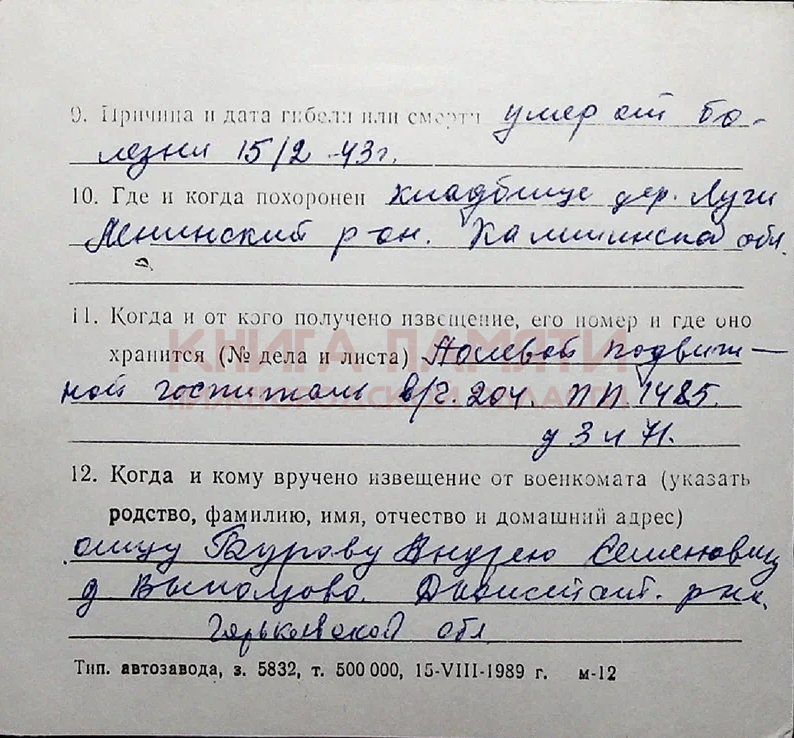 9. Причина и дата гибели или смерти умер от бо-
лезни 15/2 43г.
10. Где и когда похоронен кладбище дер. Луги
Ленинский р-он. Калининской обл.
11. Когда и от кого получено извещение, его номер и где оно
КНИГА ПАМЯТИ
хранится (№ дела и листа) Полевой подвиж-
НИЖЕГОРОДСКОЙ ОБЛАСТИ
ной госпиталь в/ч. 204. ПП 1485.
д 3 л 71.
12. Когда и кому вручено извещение от военкомата (указать
родство, фамилию, имя, отчество и домашний адрес)
отцу Гаурову Андрею Семеновичу
д Выползово. Д.Констант. р-на.
Горьковской обл
Тип. автозавода, з. 5832, т. 500 000, 15-VIII-1989 г. м-12